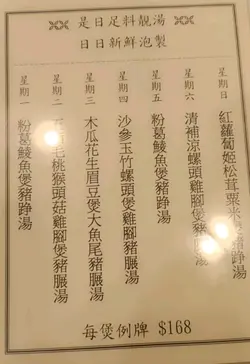 是日足料靚湯
日日新鮮泡製
星期一 粉葛鯪魚煲豬踭湯
星期二 五毛桃猴頭菇雞腳煲豬𦟌湯
星期三 木瓜花生眉豆煲大魚尾豬𦟌湯
星期四 沙參玉竹螺頭煲雞腳煲豬𦟌湯
星期五 粉葛鯪魚煲豬踭湯
星期六 清補涼螺頭煲雞腳煲豬湯
星期日 紅蘿蔔姬松茸粟米豬踭湯
每煲例牌 $168